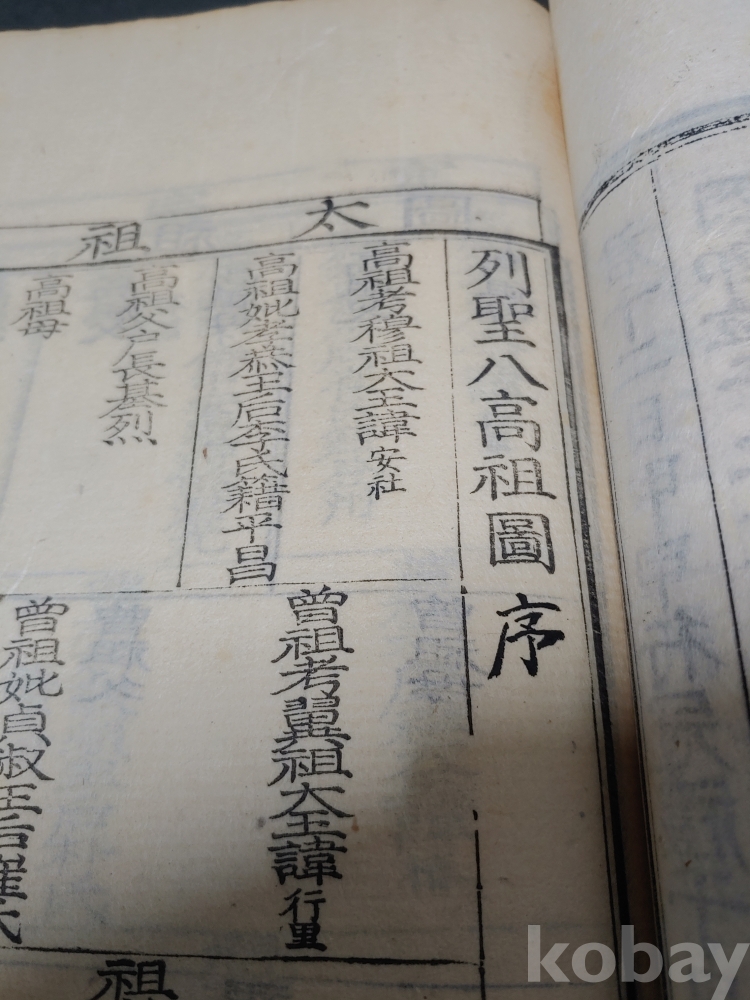 列聖八高祖圖 序
太祖
高祖考穆祖大王諱安社
高祖妣孝恭王后李氏籍平昌
高祖父戶長基烈
高祖母
曾祖考翼祖大王諱行里
曾祖妣貞淑王后崔氏
祖
kobay